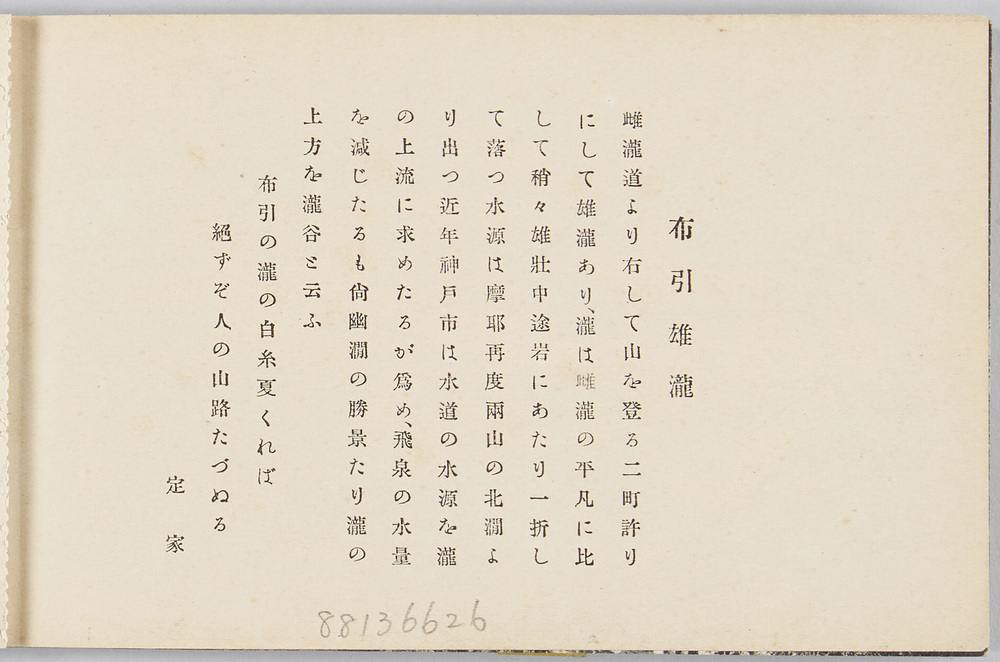 布引雄瀧
雌瀧道より右して山を登る二町許り
にして雄瀧あり、瀧は雌瀧の平凡に比
して稍々雄壯中途岩にあたり一折し
て落つ水源は摩耶再度兩山の北澗よ
り出つ近年神戸市は水道の水源を瀧
の上流に求めたるが爲め、飛泉の水量
を減じたるも尙幽澗の勝景たり瀧の
上方を瀧谷と云ふ
布引の瀧の白糸夏くれば
絕ずぞ人の山路たづぬる
定家
88136626